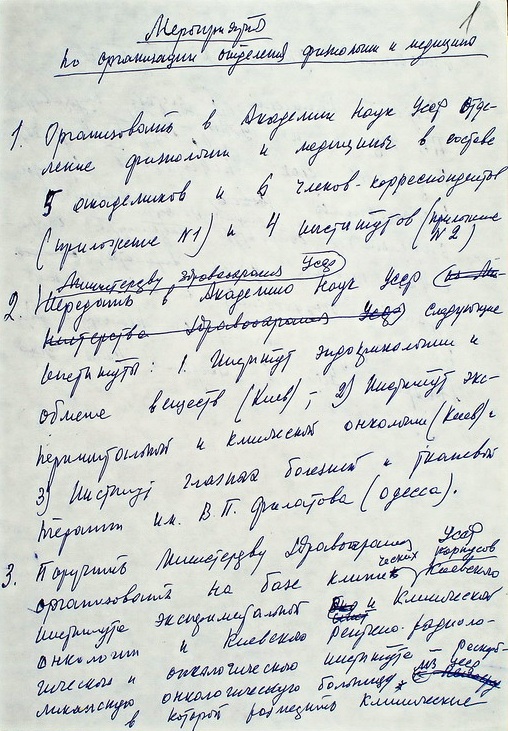 1
Мероприятия
по организации отделения физиологии и медицины
1. Организовать в Академии Наук УССР Отде-
ление физиологии и медицины в составе
5 академиков и 6 членов-корреспондентов
(приложение №1) и 4 институтов (приложение №2)
Министерству здравоохранения УССР
2. Передать в Академию Наук УССР (из Ми-
нистерства Здравоохранения УССР) следующие
институты: 1. Институт эндокринологии и
обмена веществ (Киев); 2) Институт экс-
периментальной и клинической онкологии (Киев) и
3) Институт глазных болезней и тканевой
терапии им. В.П. Филатова (Одесса).
3. Поручить Министерству Здравоохранения УССР
организовать на базе клинических корпусов Киевского
института экспериментальной и клинической
онкологии и Киевского рентгено-радиоло-
гического и онкологического института – Респуб-
ликанскую онкологическую больницу
в которой разместить клинические